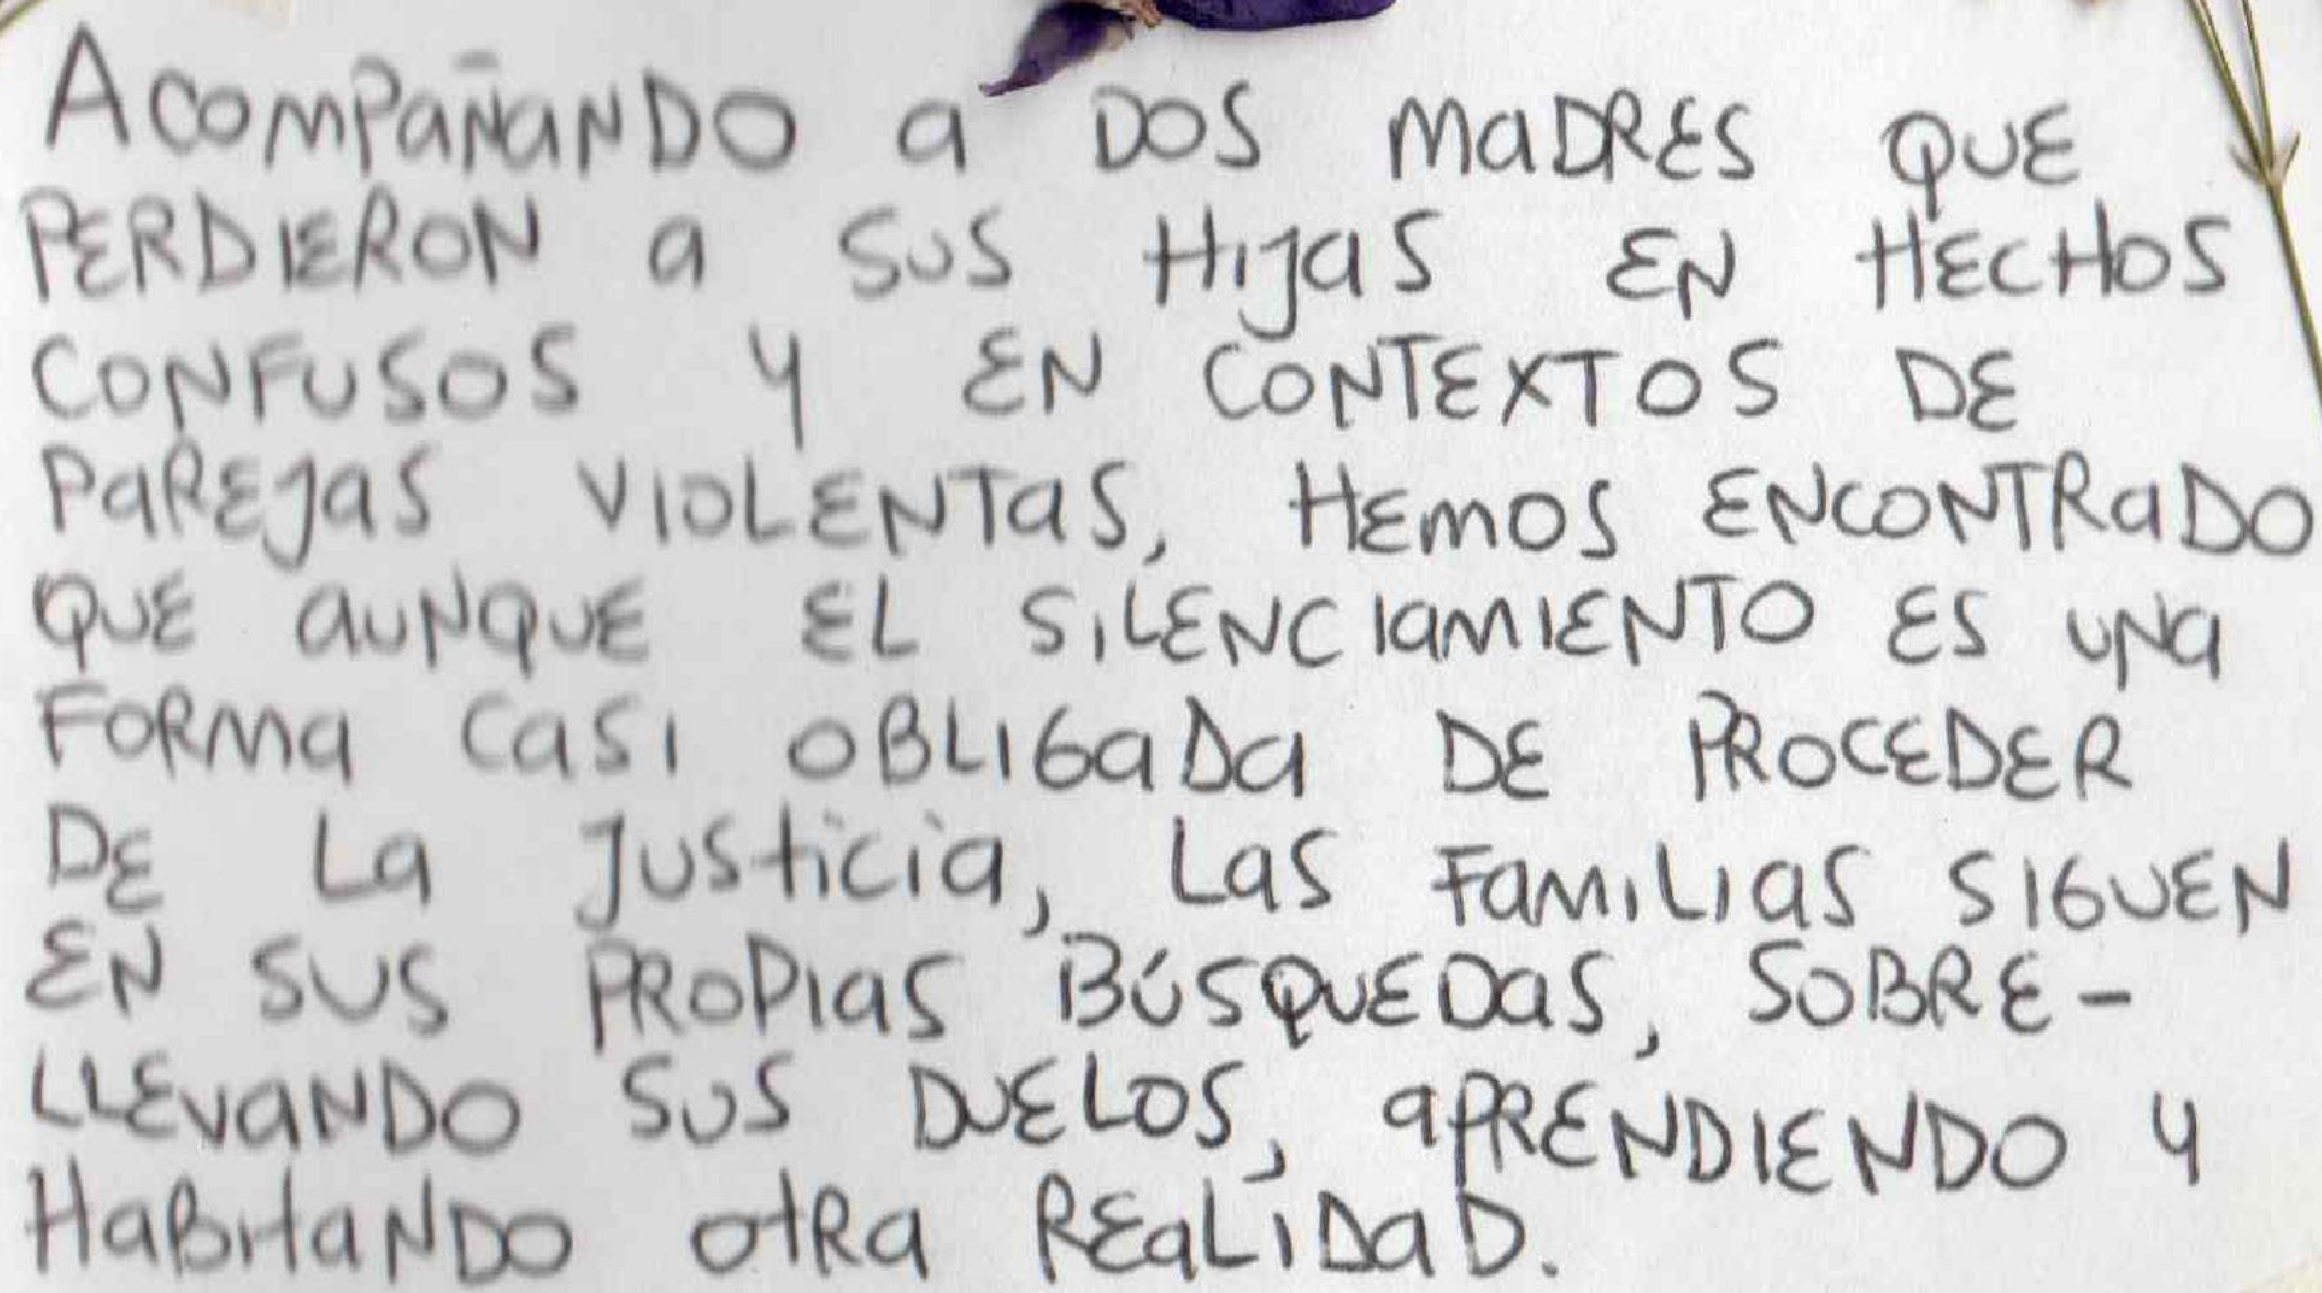 Acompañando a dos madres que
perdieron a sus hijas en hechos
confusos y en contextos de
parejas violentas, hemos encontrado
que aunque el silenciamiento es una
forma casi obligada de proceder
de la justicia, las familias siguen
en sus propias búsquedas, sobre-
llevando sus duelos, aprendiendo y
habitando otra realidad.